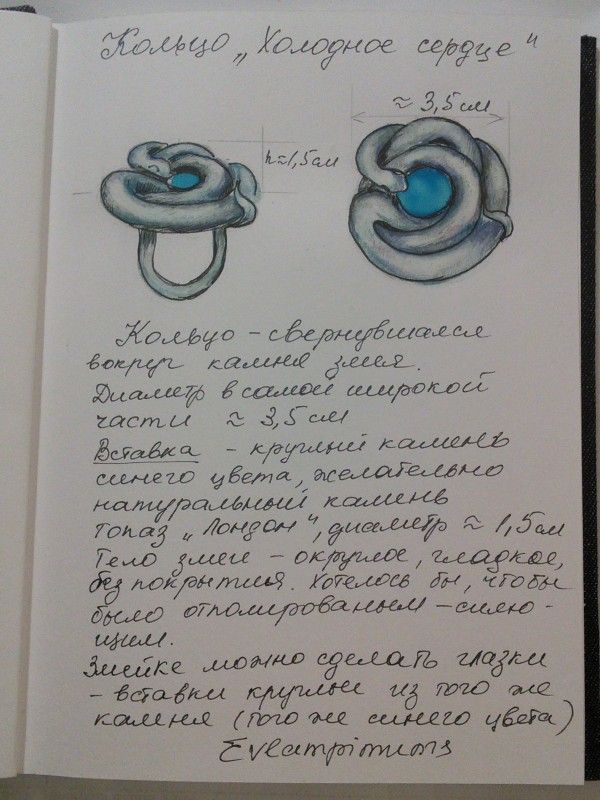 Кольцо „Холодное сердце"
≈ 3,5 см
h≈1,5см
Кольцо – свернувшаяся
вокруг камня змея.
Диаметр в самой широкой
части ≈ 3,5 см
Вставка – круглый камень
синего цвета, желательно
натуральный камень
топаз „Лондон", диаметр ≈ 1,5см
Тело змеи – округлое, гладкое,
без покрытия. Хотелось бы, чтобы
было отполированым – сияю-
щим.
Змейке можно сделать глазки
– вставки круглые из того же
камня (того же синего цвета)